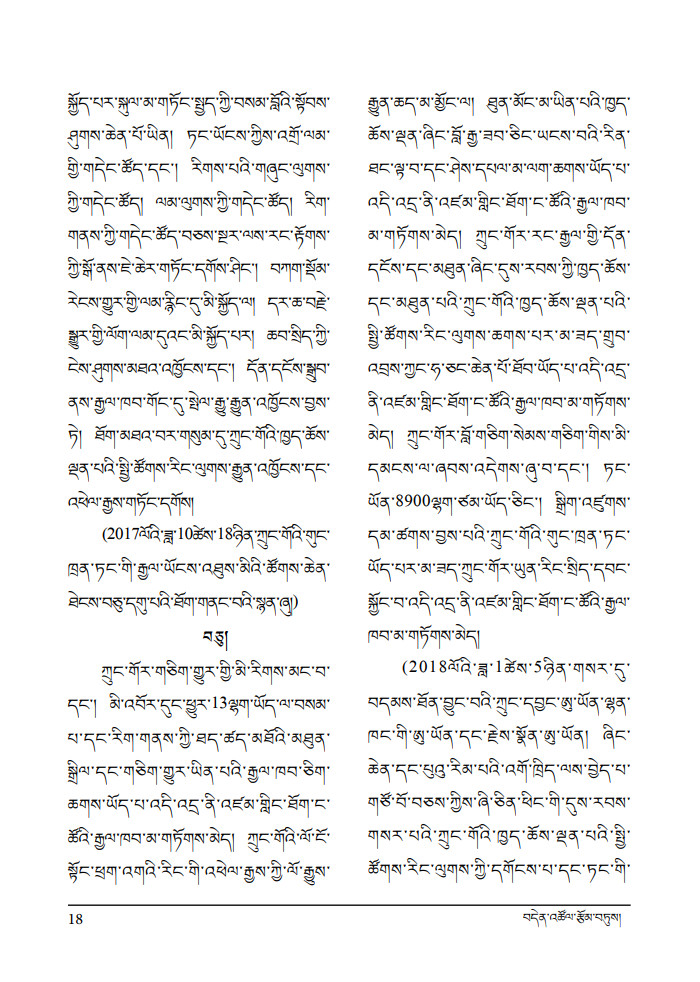 སྐྱོད་པར་སྐུལ་མ་གཏོང་སྤྱད་ཀྱི་བསམ་བློའི་སྟོབས་
ཤུགས་ཆེན་པོ་ཡིན། ཏང་ཡོངས་ཀྱིས་འགྲོ་ལམ་
གྱི་གདེང་ཚོད་དང་། རིགས་པའི་གཞུང་ལུགས་
ཀྱི་གདེང་ཚོད། ལམ་ལུགས་ཀྱི་གདེང་ཚོད། རིག་
གནས་ཀྱི་གདེང་ཚོད་བཅས་སྔར་ལས་རང་རྟོགས་
ཀྱི་སྒོ་ནས་ཇེ་ཆེར་གཏོང་དགོས་ཤིང་། བཀག་སྡོམ་
རེངས་གྱུར་གྱི་ལམ་རྙིང་དུ་མི་སྐྱོད་ལ། དར་ཆ་བརྗེ་
སྒྱུར་གྱི་ལོག་ལམ་དུའང་མི་སྐྱོད་པར། ཆབ་སྲིད་ཀྱི་
ངེས་ཤུགས་མཐའ་འཁྱོངས་དང་། དོན་དངོས་སྒྲུབ་
ནས་རྒྱལ་ཁབ་གོང་དུ་སྤེལ་རྒྱུ་རྒྱུན་འཁྱོངས་བྱས་
ཏེ། ཐོག་མཐའ་བར་གསུམ་དུ་ཀྲུང་གོའི་ཁྱད་ཆོས་
ལྡན་པའི་སྤྱི་ཚོགས་རིང་ལུགས་རྒྱུན་འཁྱོངས་དང་
འཕེལ་རྒྱས་གཏོང་དགོས།
(2017ལོའི་ཟླ་10ཚེས་18ཉིན་ཀྲུང་གོའི་གུང་
ཁྲན་ཏང་གི་རྒྱལ་ཡོངས་འཐུས་མིའི་ཚོགས་ཆེན་
ཐེངས་བཅུ་དགུ་པའི་ཐོག་གནང་བའི་སྙན་ཞུ།)
བཅུ།
ཀྲུང་གོར་གཅིག་གྱུར་གྱི་མི་རིགས་མང་བ་
དང་། མི་འབོར་དུང་ཕྱུར་13ལྷག་ཡོད་ལ་བསམ་
པ་དང་རིག་གནས་ཀྱི་ཐད་ཚད་མཐོའི་མཐུན་
སྒྲིལ་དང་གཅིག་གྱུར་ཡིན་པའི་རྒྱལ་ཁབ་ཅིག་
ཆགས་ཡོད་པ་འདི་འདྲ་ནི་འཛམ་གླིང་ཐོག་ང་
ཚོའི་རྒྱལ་ཁབ་མ་གཏོགས་མེད། ཀྲུང་གོའི་ལོ་ངོ་
སྟོང་ཕྲག་འགའི་རིང་གི་འཕེལ་རྒྱས་ཀྱི་ལོ་རྒྱུས་
རྒྱུན་ཆད་མ་མྱོང་ལ། ཐུན་མོང་མ་ཡིན་པའི་ཁྱད་
ཆོས་ལྡན་ཞིང་བློ་རྒྱ་ཟབ་ཅིང་ཡངས་བའི་རིན་
ཐང་ལྟ་བ་དང་ཤེས་དཔལ་མ་ལག་ཆགས་ཡོད་པ་
འདི་འདྲ་ནི་འཛམ་གླིང་ཐོག་ང་ཚོའི་རྒྱལ་ཁབ་
མ་གཏོགས་མེད། ཀྲུང་གོར་རང་རྒྱལ་གྱི་དོན་
དངོས་དང་མཐུན་ཞིང་དུས་རབས་ཀྱི་ཁྱད་ཆོས་
དང་མཐུན་པའི་ཀྲུང་གོའི་ཁྱད་ཆོས་ལྡན་པའི་
སྤྱི་ཚོགས་རིང་ལུགས་ཆགས་པར་མ་ཟད་གྲུབ་
འབྲས་ཀྱང་ཧ་ཅང་ཆེན་པོ་ཐོབ་ཡོད་པ་འདི་འདྲ་
ནི་འཛམ་གླིང་ཐོག་ང་ཚོའི་རྒྱལ་ཁབ་མ་གཏོགས་
མེད། ཀྲུང་གོར་བློ་གཅིག་སེམས་གཅིག་གིས་མི་
དམངས་ལ་ཞབས་འདེགས་ཞུ་བ་དང་། ཏང་
ཡོན་8900ལྷག་ཙམ་ཡོད་ཅིང་། སྒྲིག་འཛུགས་
དམ་ཚགས་བྱས་པའི་ཀྲུང་གོའི་གུང་ཁྲན་ཏང་
ཡོད་པར་མ་ཟད་ཀྲུང་གོར་ཡུན་རིང་སྲིད་དབང་
སྐྱོང་བ་འདི་འདྲ་ནི་འཛམ་གླིང་ཐོག་ང་ཚོའི་རྒྱལ་
ཁབ་མ་གཏོགས་མེད།
(2018ལོའི་ཟླ་1ཚེས་5ཉིན་གསར་དུ་
བདམས་ཐོན་བྱུང་བའི་ཀྲུང་དབྱང་ཨུ་ཡོན་ལྷན་
ཁང་གི་ཨུ་ཡོན་དང་རྗེས་སྣོན་ཨུ་ཡོན། ཞིང་
ཆེན་དང་པུའུ་རིམ་པའི་འགོ་ཁྲིད་ལས་བྱེད་པ་
གཙོ་བོ་བཅས་ཀྱིས་ཞི་ཅིན་ཕིང་གི་དུས་རབས་
གསར་པའི་ཀྲུང་གོའི་ཁྱད་ཆོས་ལྡན་པའི་སྤྱི་
ཚོགས་རིང་ལུགས་ཀྱི་དགོངས་པ་དང་ཏང་གི་
18 བདེན་འཚོལ་རྩོམ་བཏུས།